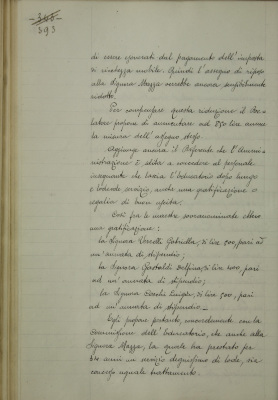 346
393
di essere esonerati dal pagamento dell'imposta
di ricchezza mobile. Quindi l'assegno di riposo
alla Signora Mazza sarebbe ancora sensibilmente
ridotto.
Per compensare questa riduzione il Rela-
tore propone di aumentare ad 850 lire annue
la misura dell'assegno stesso.
Aggiunge ancora il Referente che l'Ammi-
nistrazione è solita a concedere al personale
insegnante che lascia l'Educatorio dopo lungo
e lodevole servizio, anche una gratificazione o
regalia di buon uscita.
Così fra le maestre sovrannominate ebbero
una gratificazione:
la Signora Vercelli Gabriella, di lire 500, pari ad
un'annata di stipendio;
la Signora Garibaldi Delfina, di lire 1000, pari
ad un'annata di stipendio;
la Signora Luigia, di lire 500, pari
ad un'annata di stipendio.
Egli propone pertanto, unanimemente con la
Commissione dell'Educatorio, che anche alla
Signora Mazza, la quale ha prestato per
anni un servizio degnissimo di lode, sia
concesso uguale trattamento.